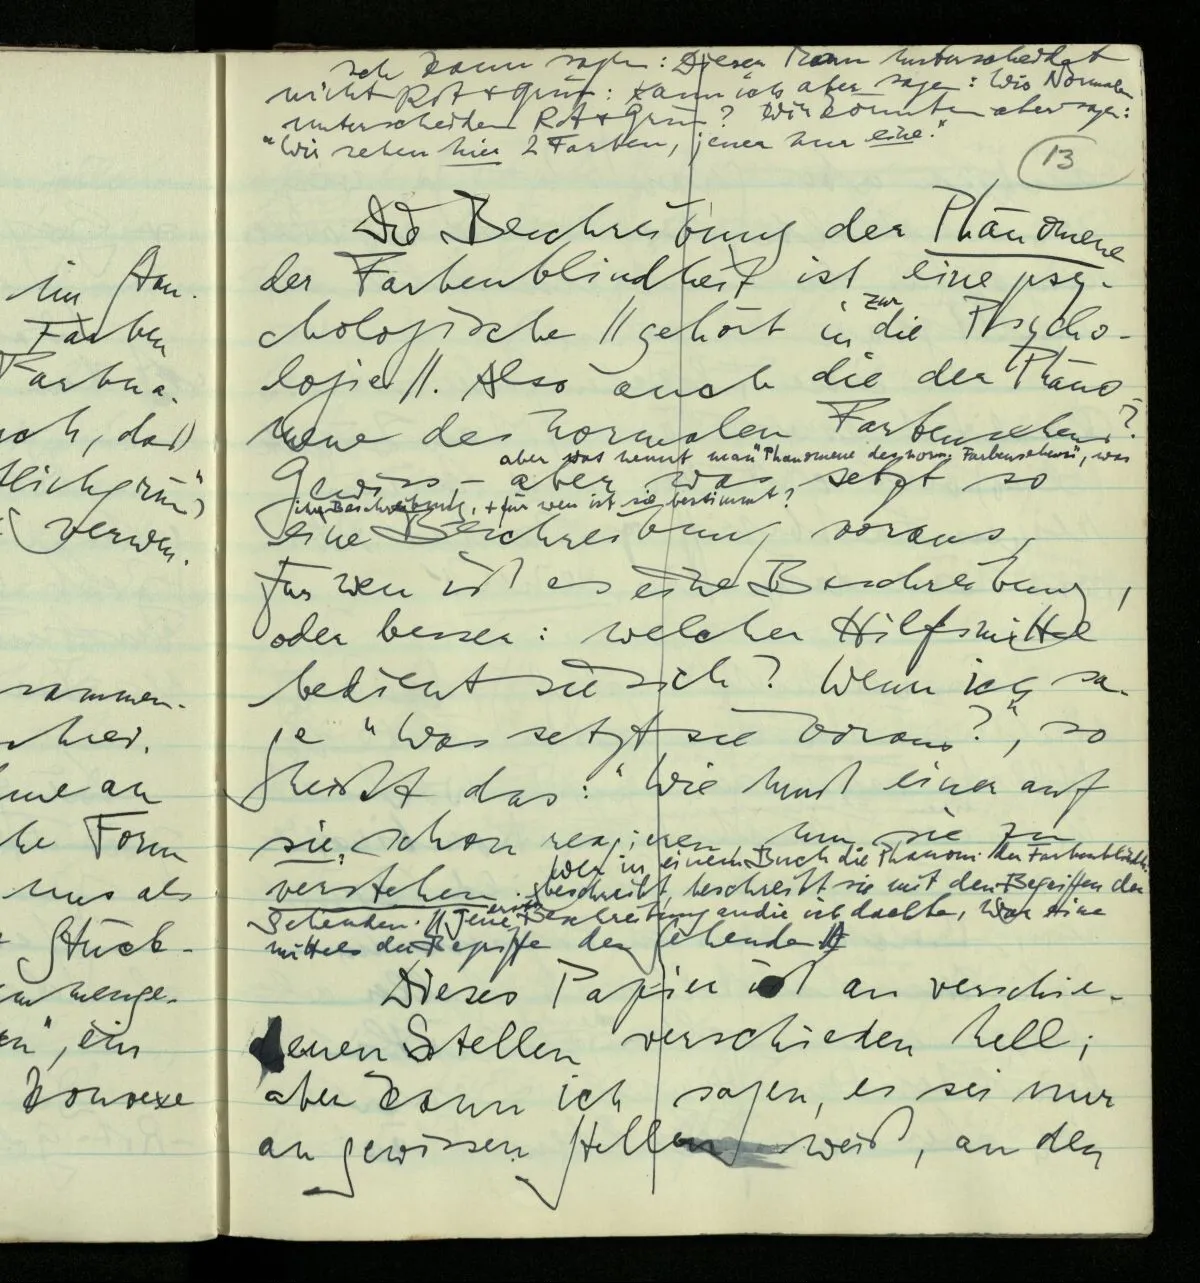 im Gan-
Farben
Farbna-
uch, daß
tlichgrün")
verwen-
sammen-
schrei.
me an
he Form
uns als
Stück-
mmenge-
en", ein
konvexe
Ich kann sagen: Dieser Mann unterscheidet
nicht Rot + Grün: kann ich aber sagen: Wir Normalen
unterscheiden Rot + Grün? Wir könnten aber sagen:
"Wir sehen hier 2 Farben, jener nur eine."
13
Die Beschreibung der Phänomene
der Farbenblindheit ist eine psy-
chologische // gehört in zur die Psycho-
logie //. Also auch die der Phäno
mene des normalen Farbensehens?
aber was nennt man "Phänomene des norm. Farbensehens", was
Gewiss – aber was setzt so
ihre Beschreibung, + für wen ist sie bestimmt?
eine Beschreibung voraus,
für wen ist es eine Beschreibung,
oder besser: welcher Hilfsmittel
bedient sie sich? Wenn ich sa-
ge "Was setzt sie voraus?", so
heißt das: "Wie muß einer auf
sie schon reagieren um sie zu
verstehen. Wer in einem Buch die Phänom. der Farbenblindh.
beschreibt, beschreibt sie mit den Begriffen der
Sehenden. // Jene erste Beschreibung an die ich dachte, war eine
mittels der Begriffe der Sehenden //
Dieses Papier ist an verschie-
denen Stellen verschieden hell;
aber kann ich sagen, es sei nur
an gewissen Stellen weiß, an den